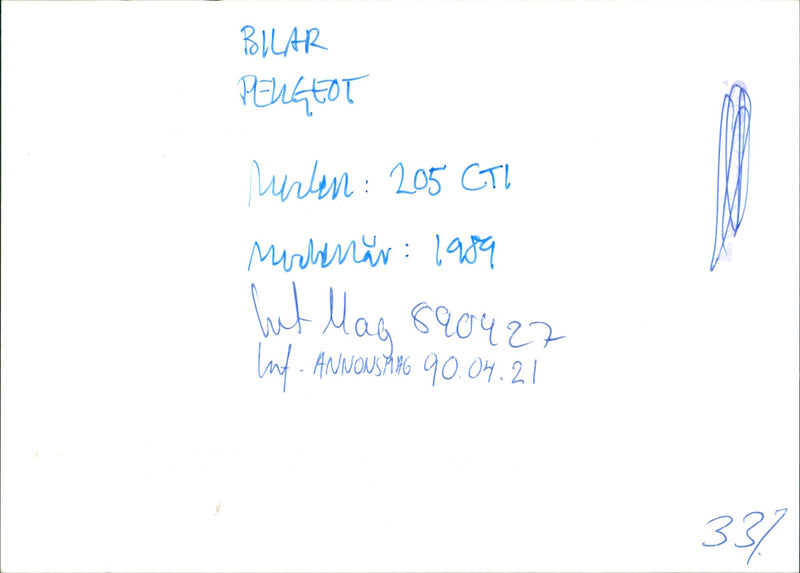 BILAR
PEUGEOT
Modell: 205 CTI
Modellår: 1989
Inf Mag 890427
Inf. ANNONSMAG 90.04.21
33%